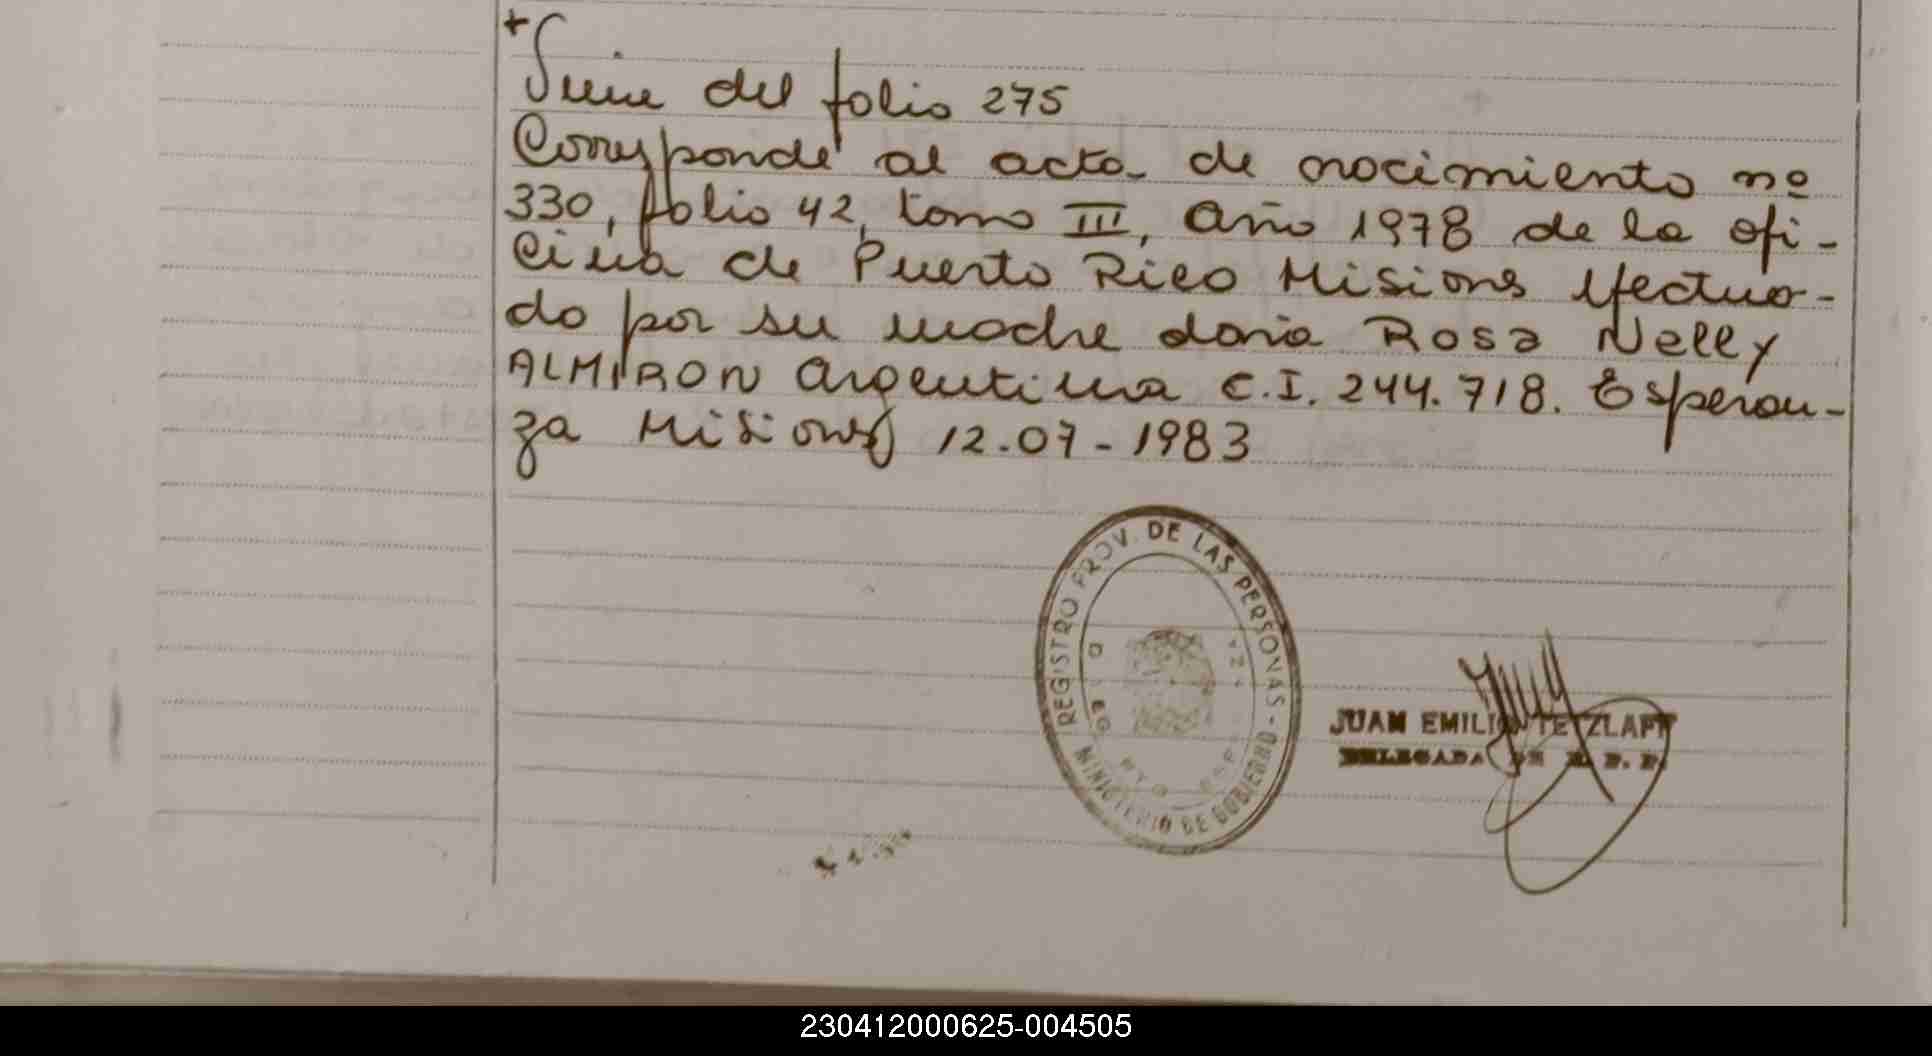 +
Viene del folio 275
Corresponde al acta de nacimiento nº
330, folio 42, tomo III, año 1978 de la ofi-
cina de Puerto Rico Misiones efectua-
do por su madre doña Rosa Nelly
ALMIRON argentina C.I. 244.718. Esperan-
za Misiones 12-07-1983
REGISTRO PROV. DE LAS PERSONAS - MINISTERIO DE GOBIERNO
JUAN EMILIO TETZLAFF
DELEGADA DE R. P. P.
230412000625-004505